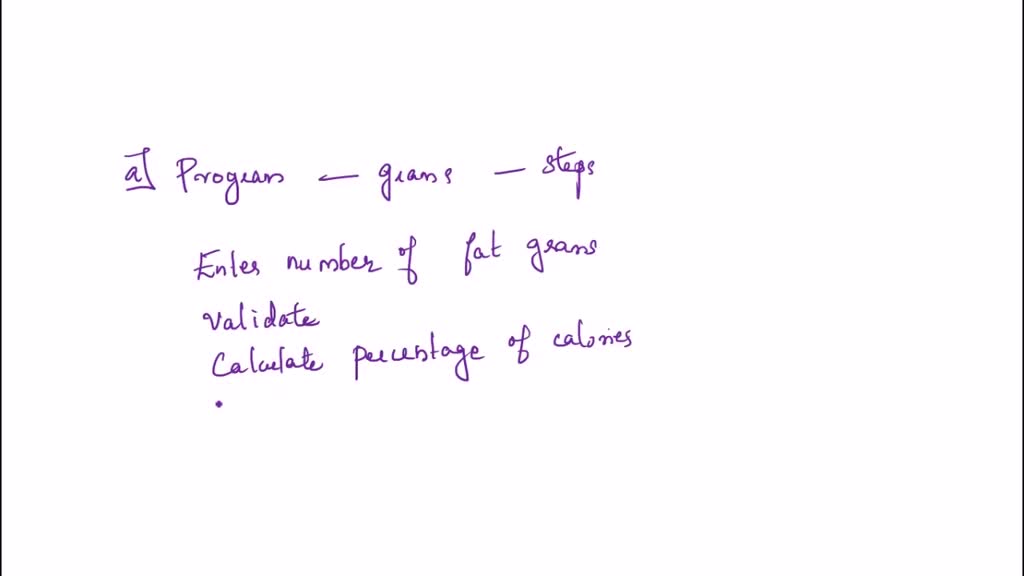 a] Program — grams — steps
Enter number of fat grams
validate
Calculate percentage of calories